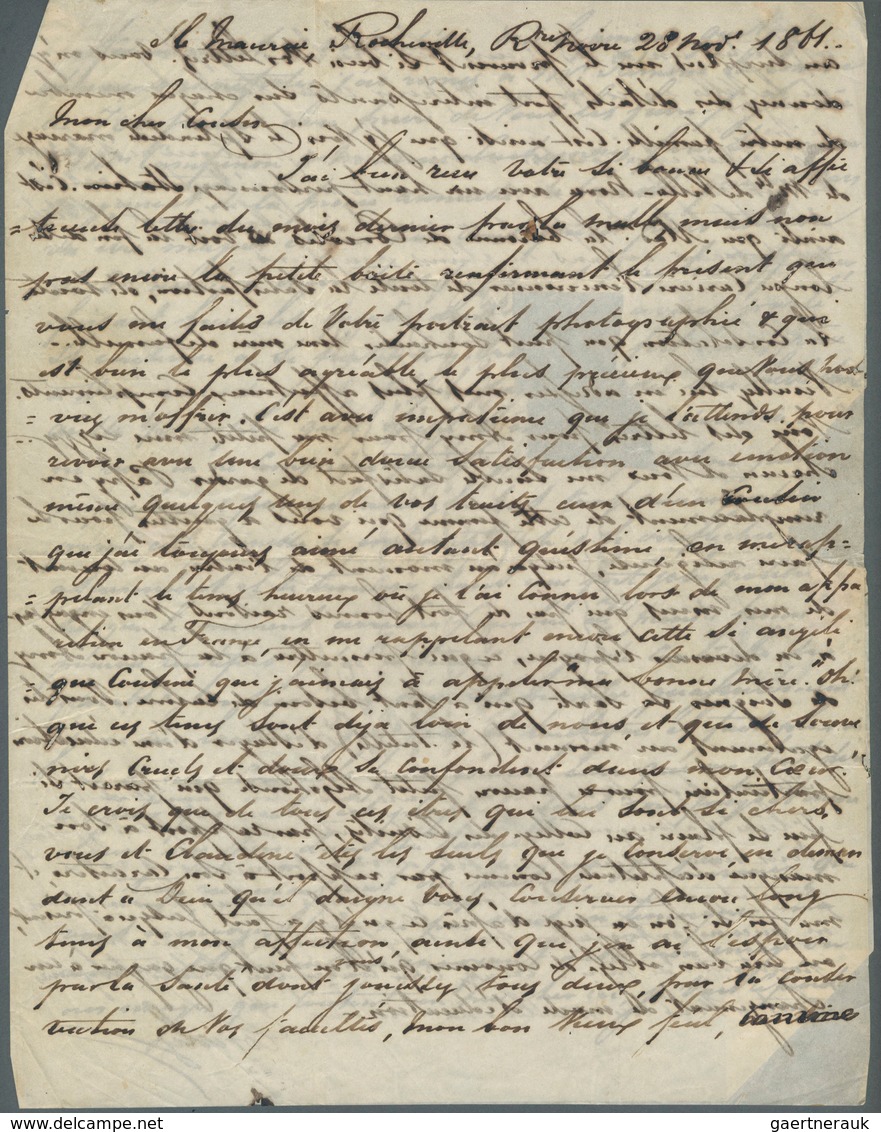 Maurice, Rocheville, Rre noire 28 Novr. 1861.
Mon cher Cousin
J'ai bien reçu votre si bonne & si affec
= tueuse lettre du mois dernier par la malle mais non
pas encore la petite boîte renfermant le présent que
vous me faites de Votre portrait photographié & qui
est bien le plus agréable le plus précieux que Vous
= m'offrir. C'est avec impatience que je l'attends pour
revoir avec une bien douce satisfaction avec émotion
même quelques uns de vos traits, ceux d'un Cousin
que j'ai toujours aimé autant qu'estimé, en me rap=
= pelant le tems heureux où je l'ai connu lors de mon appa
rition en France, en me rappelant encore cette si angéli
= que Cousine que j'aimais à appeler "ma bonne mère." Oh!
que ces tems sont déjà loin de nous et que de Souve
nirs Cruels et doux se confondent dans mon Cœur!
Je crois que de tous ces êtres qui me sont si chers,
vous et Claudine êtes les seuls que je conserve en deman
dant à Dieu qu'il daigne vous conserver encore long
tems à mon affection ainsi que j'en ai l'espoir
par la santé dont vous jouissez tous deux, par la conser
vation de Vos facultés, mon bon Vieux
gaertnerauk